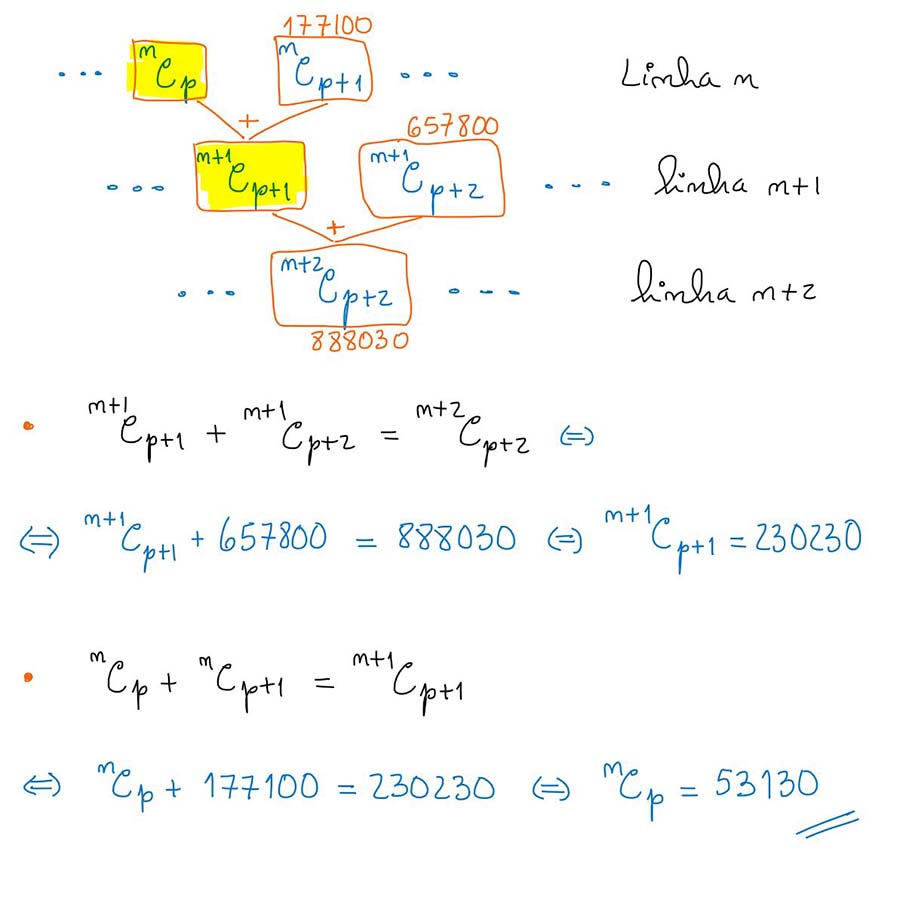 177100
... ᵐCₚ ᵐCₚ₊₁ ... Linha m
+
657800
... ᵐ⁺¹Cₚ₊₁ ᵐ⁺¹Cₚ₊₂ ... linha m+1
+
... ᵐ⁺²Cₚ₊₂ ... linha m+2
888030
• ᵐ⁺¹Cₚ₊₁ + ᵐ⁺¹Cₚ₊₂ = ᵐ⁺²Cₚ₊₂ ⇔
⇔ ᵐ⁺¹Cₚ₊₁ + 657800 = 888030 ⇔ ᵐ⁺¹Cₚ₊₁ = 230230
• ᵐCₚ + ᵐCₚ₊₁ = ᵐ⁺¹Cₚ₊₁
⇔ ᵐCₚ + 177100 = 230230 ⇔ ᵐCₚ = 53130